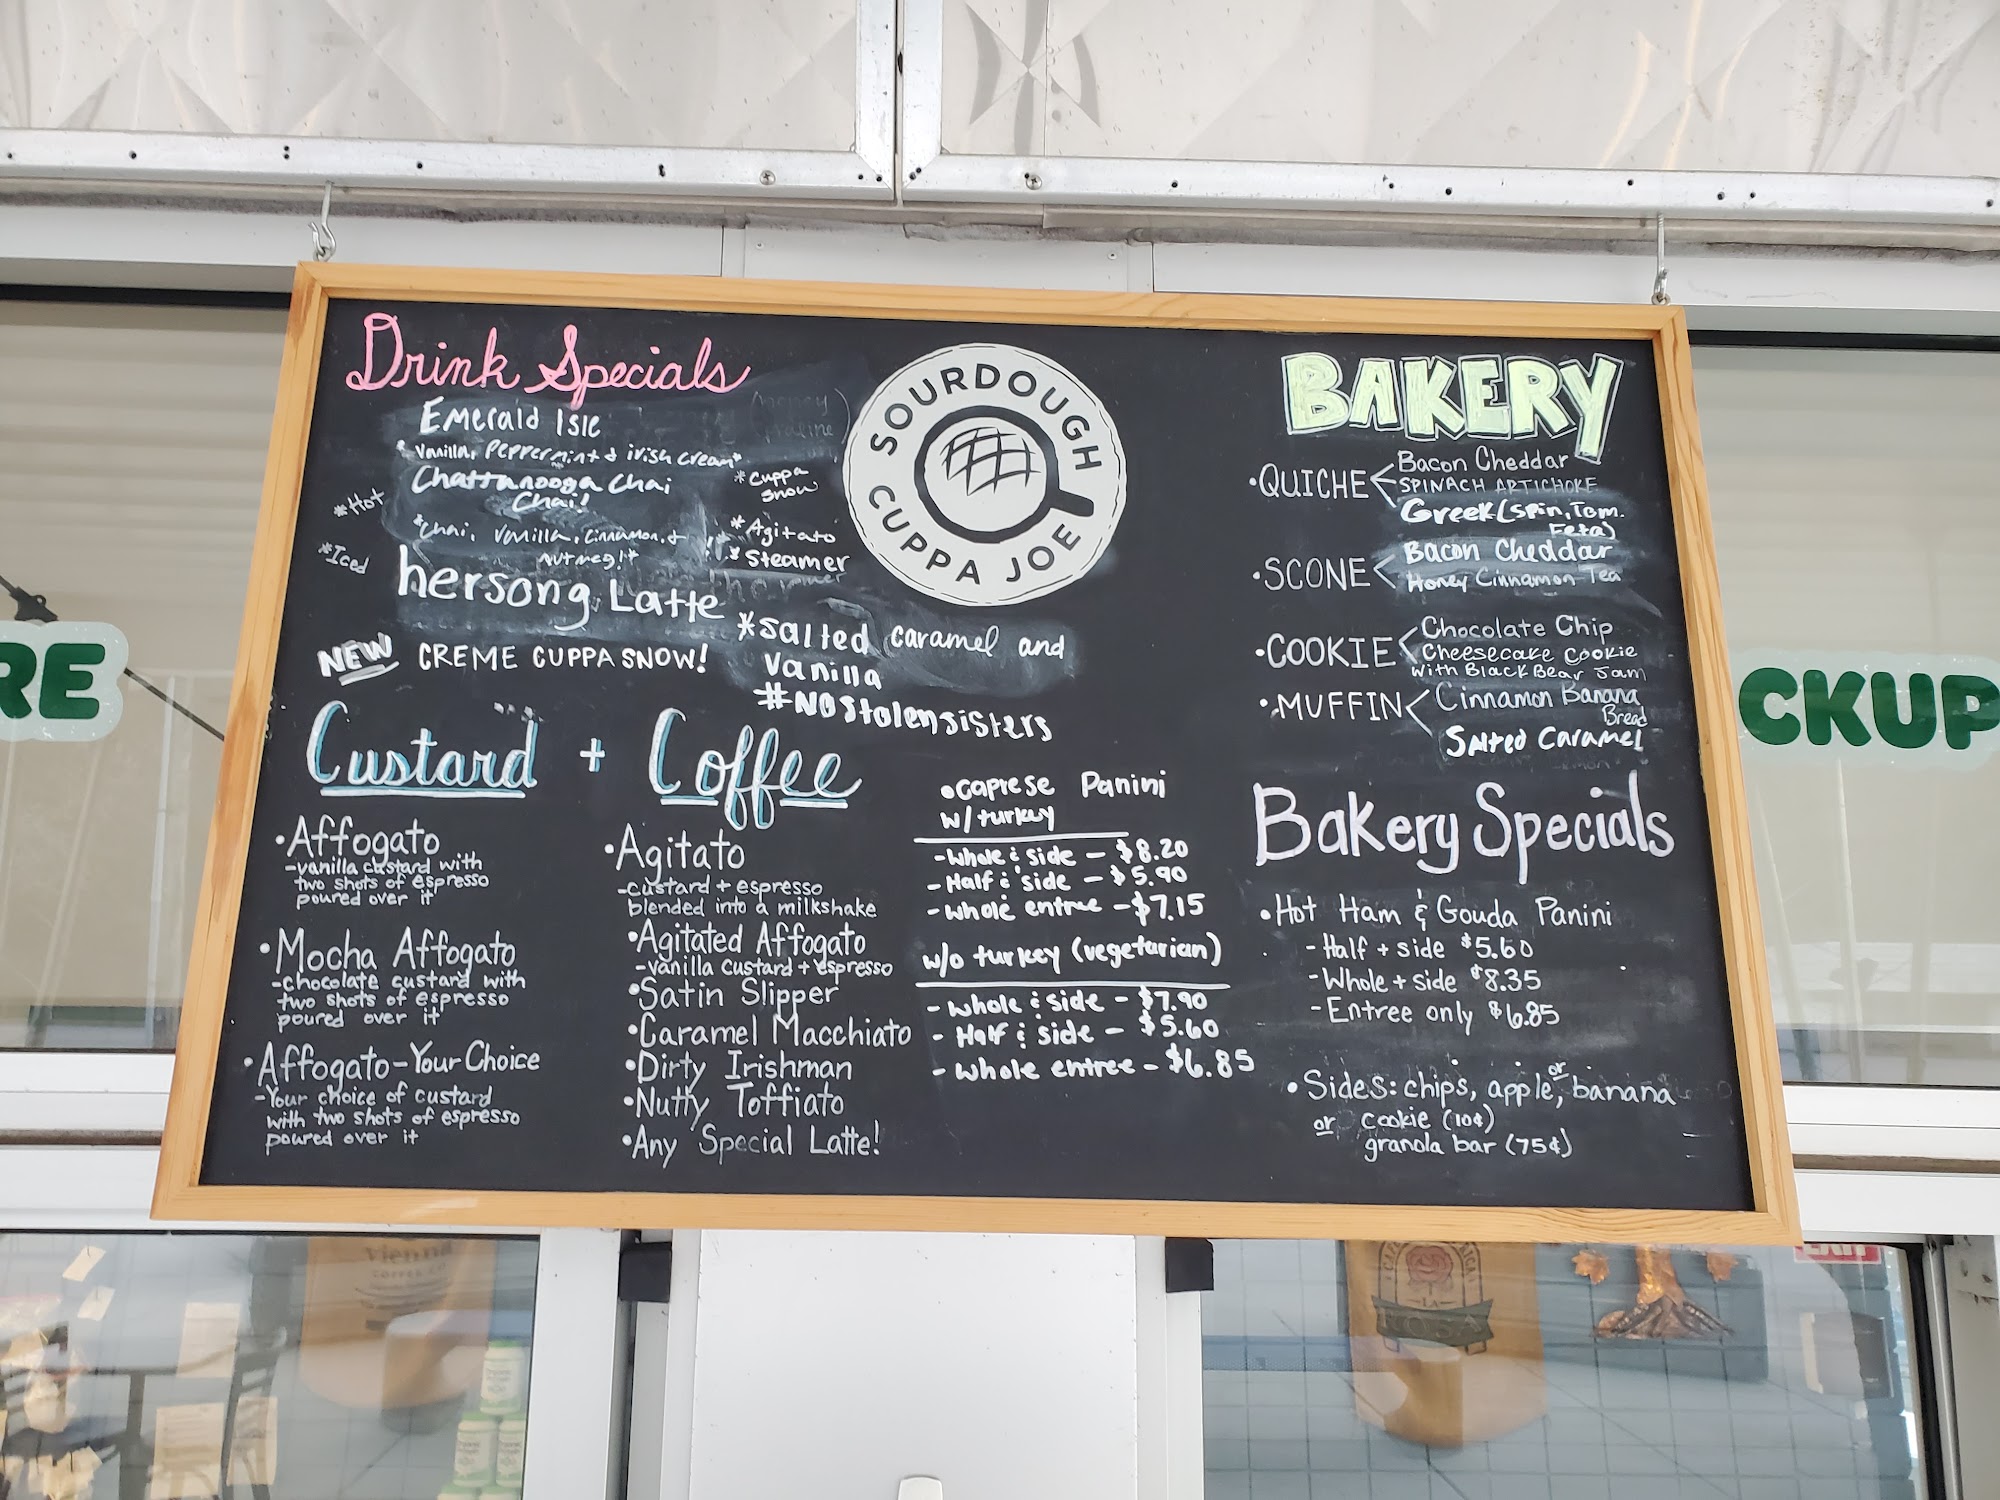 Drink Specials
Emerald Isle
*Vanilla, Peppermint & irish cream*
Chattanooga Chai
Chai!
*Chai, Vanilla, Cinnamon, &
nutmeg!*
*Hot
*Iced
*Cuppa
Snow
*Agitato
*Steamer
hersong Latte
*salted caramel and
vanilla
#NOstolensisters
NEW CREME CUPPA SNOW!
SOURDOUGH
CUPPA JOE
Custard + Coffee
•Affogato
-vanilla custard with
two shots of espresso
poured over it
•Mocha Affogato
-chocolate custard with
two shots of espresso
poured over it
•Affogato-Your Choice
-Your choice of custard
with two shots of espresso
poured over it
•Agitato
-custard + espresso
blended into a milkshake
•Agitated Affogato
-vanilla custard + espresso
•Satin Slipper
•Caramel Macchiato
•Dirty Irishman
•Nutty Toffiato
•Any Special Latte!
•caprese Panini
w/turkey
-whole & side - $8.20
-Half & side - $5.90
-whole entree - $7.15
w/o turkey (vegetarian)
-whole & side - $7.90
-Half & side - $5.60
-whole entree - $6.85
BAKERY
•QUICHE
Bacon Cheddar
SPINACH ARTICHOKE
Greek (spin, Tom.
Feta)
•SCONE
Bacon Cheddar
Honey Cinnamon Tea
•COOKIE
Chocolate Chip
Cheesecake Cookie
with Black Bear Jam
•MUFFIN
Cinnamon Banana
Bread
Salted Caramel
Bakery Specials
•Hot Ham & Gouda Panini
-Half + side $5.60
-Whole + side $8.35
-Entree only $6.85
•Sides: chips, apple, or banana
or cookie (10¢)
granola bar (75¢)
RE
CKUP
Vienna
COFFEE CO
LA
ROSA
EXIT